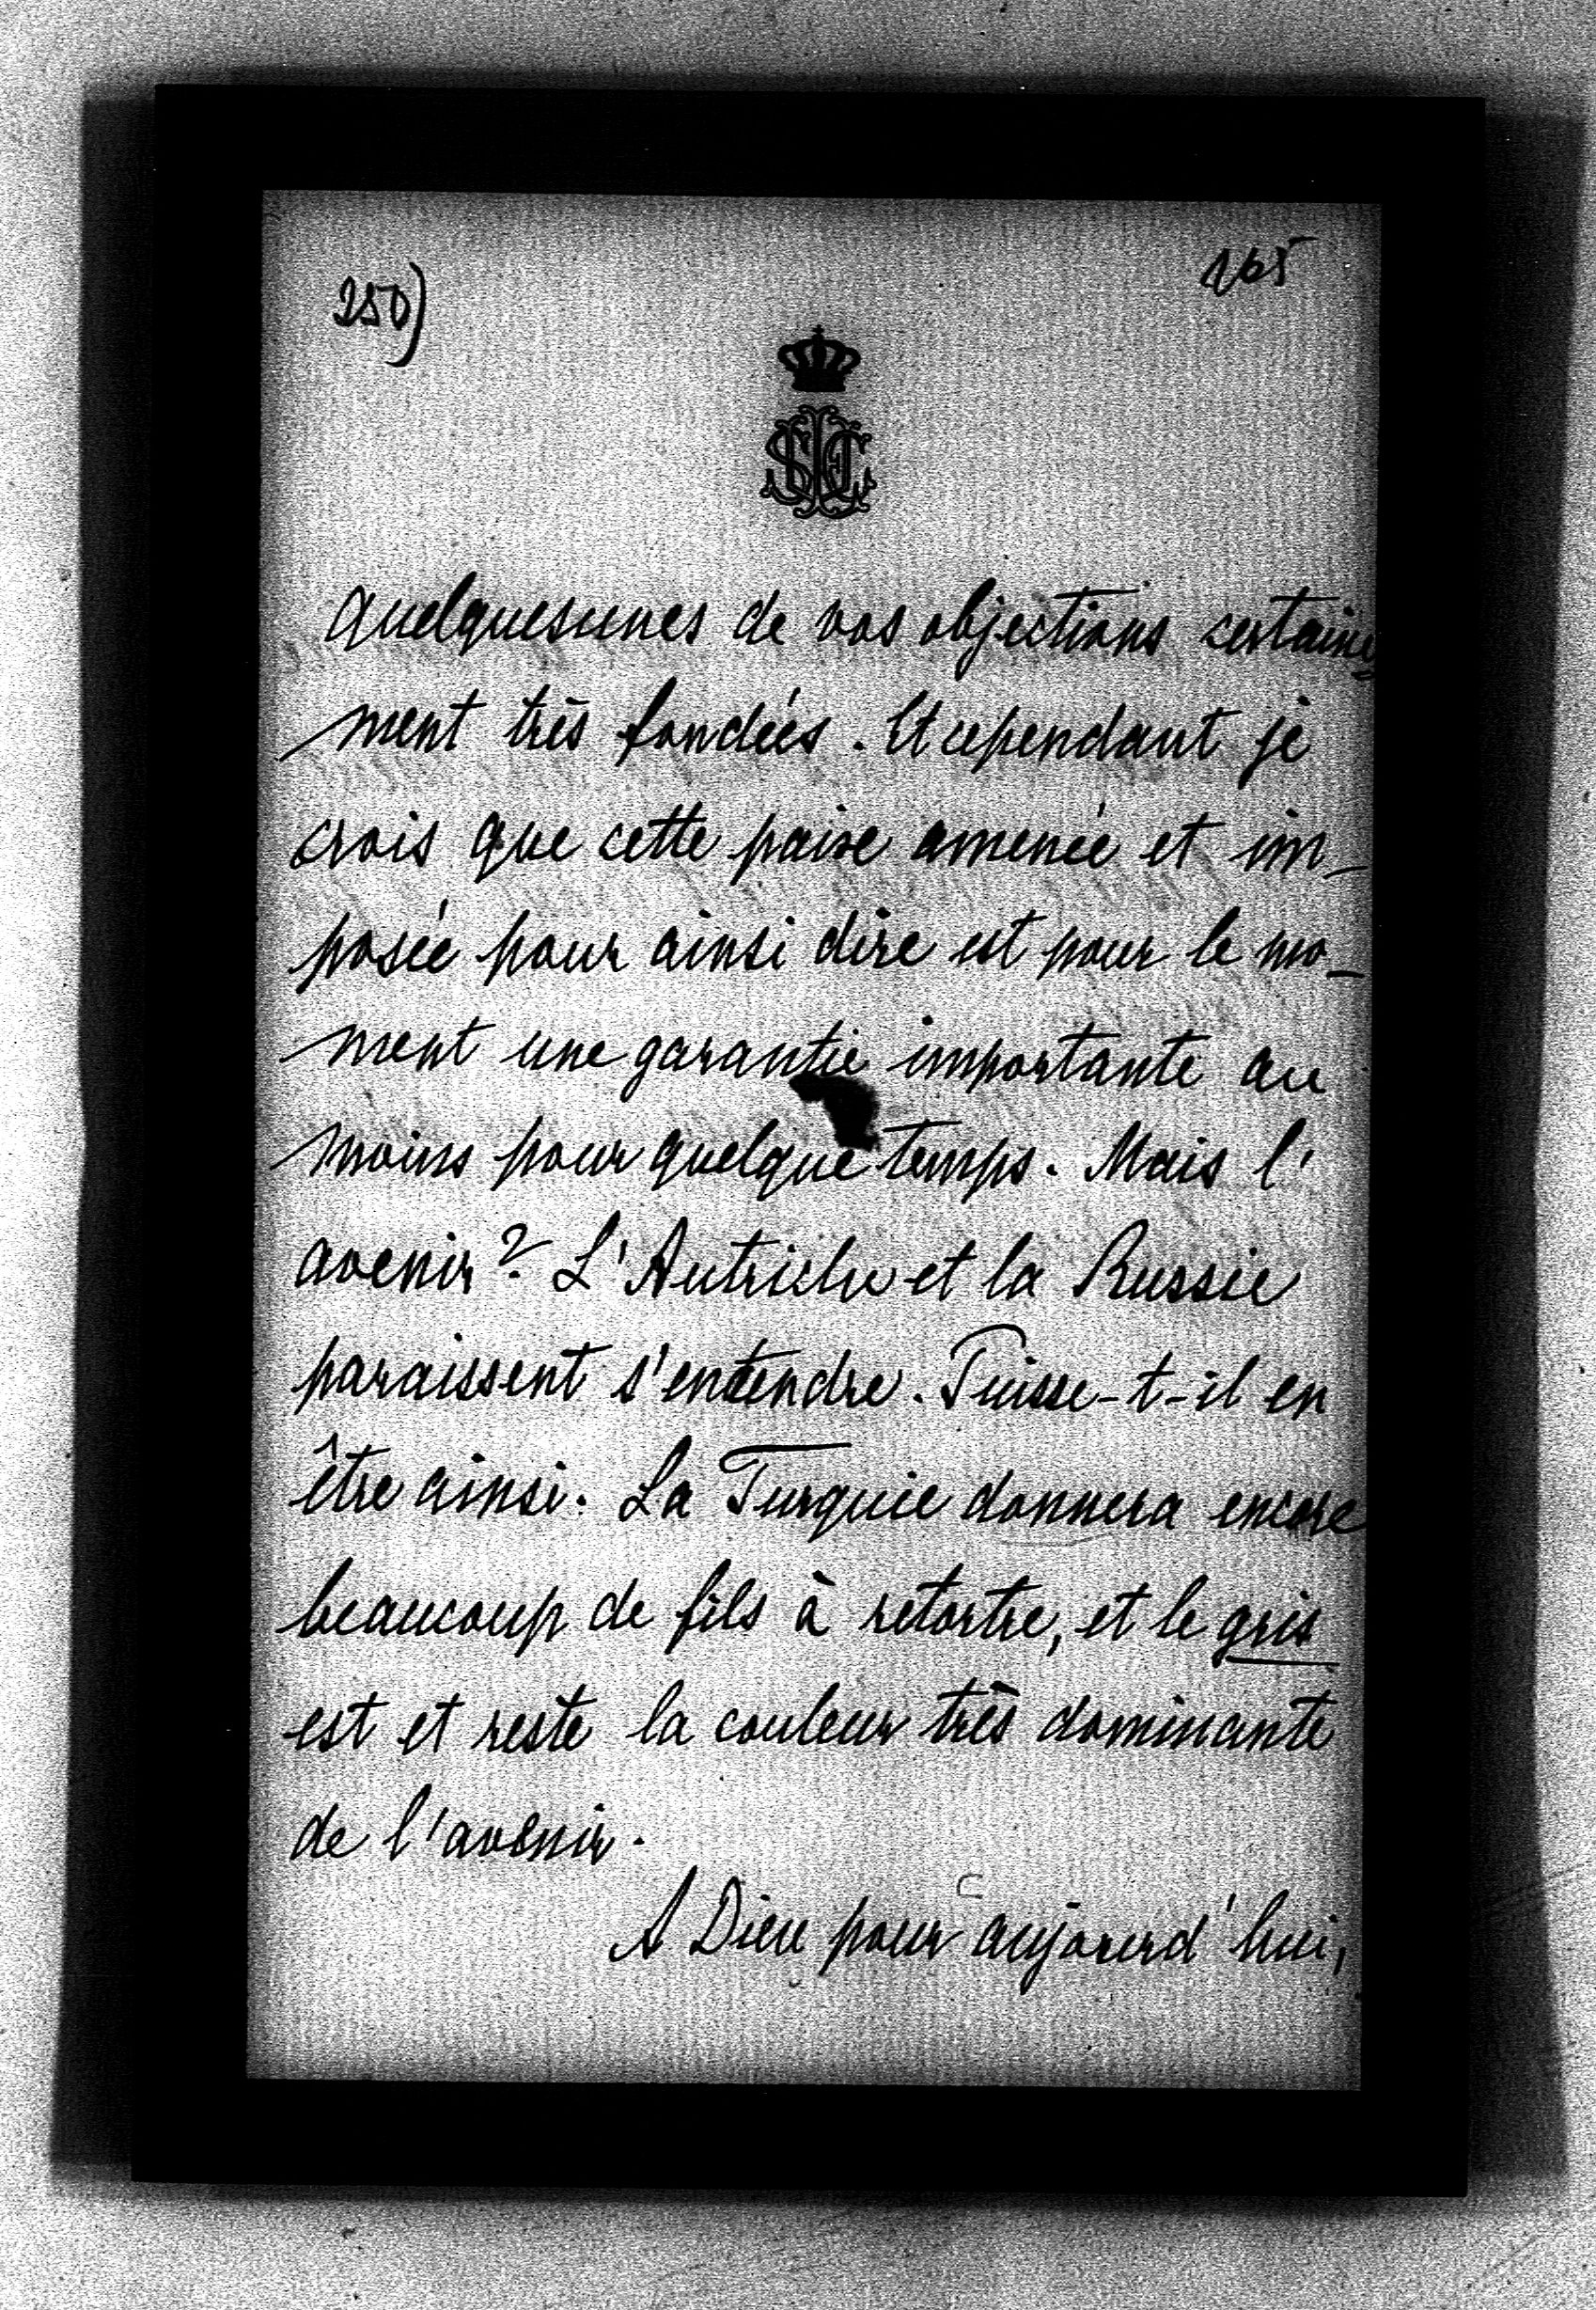 250)
165
quelquesunes de vos objections certaine
ment très fondées. Et cependant je
crois que cette paixe amenée et im_
posée pour ainsi dire est pour le mo_
ment une garantie importante au
moins pour quelque temps. Mais l'
avenir? L'Autriche et la Russie
paraissent s'entendre. Puisse-t-il en
être ainsi. La Turquie donnera encore
beaucoup de fils à retortre, et le gris
est et reste la couleur très dominante
de l'avenir.
A Dieu pour aujourd'hui,